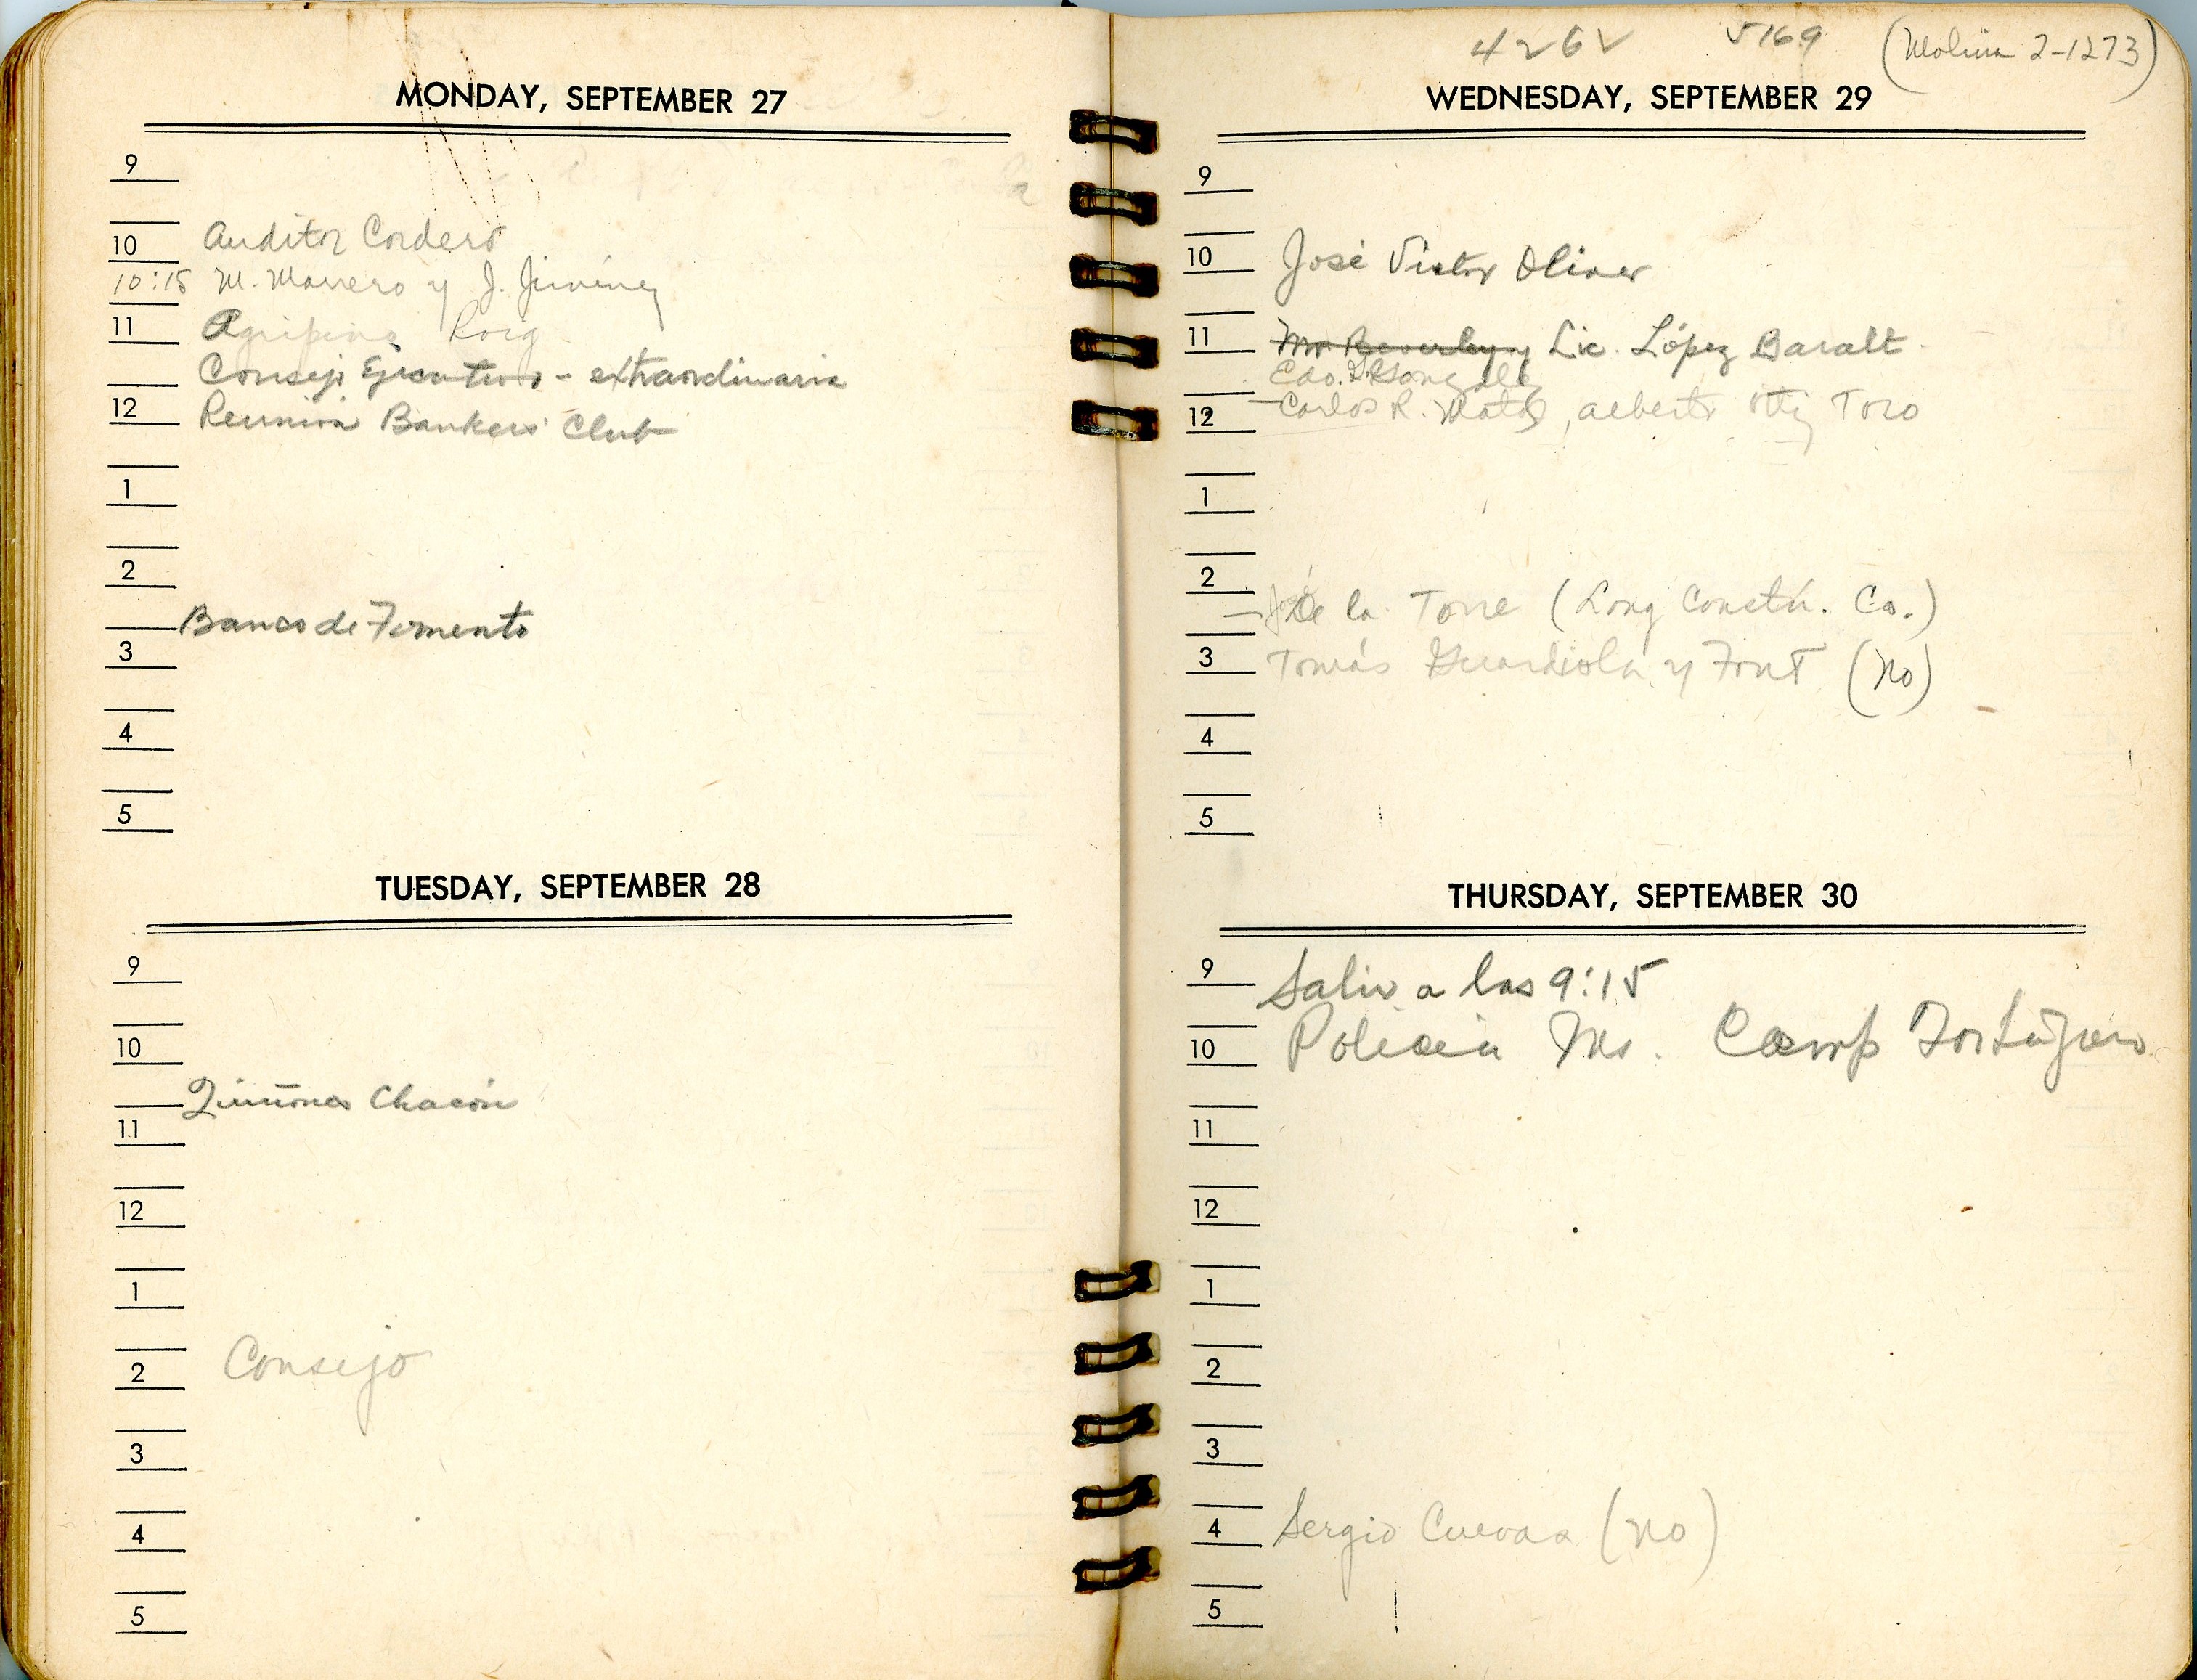 MONDAY, SEPTEMBER 27
9
10 Auditor Cordero
10:15 M. Marrero y J. Jiménez
11 Agripino Roig
Consejo Ejecutivo - extraordinaria
12 Reunion Bankers' Club
1
2
Banco de Fomento
3
4
5
TUESDAY, SEPTEMBER 28
9
10
Quiñones Chacón
11
12
1
2 Consejo
3
4
5
4262 5169 (Molina 2-1273)
WEDNESDAY, SEPTEMBER 29
9
10 José Victor Oliver
11 Mr. Beverley y Lic. López Baralt
Edo. González
12 Carlos R. Matos, Alberto Ortiz Toro
1
2
José De la Torre (Long Constr. Co.)
3 Tomás Guardiola y Font (No)
4
5
THURSDAY, SEPTEMBER 30
9 Salir a las 9:15
10 Policía Camp Tortuguero
11
12
1
2
3
4 Sergio Cuevas (no)
5